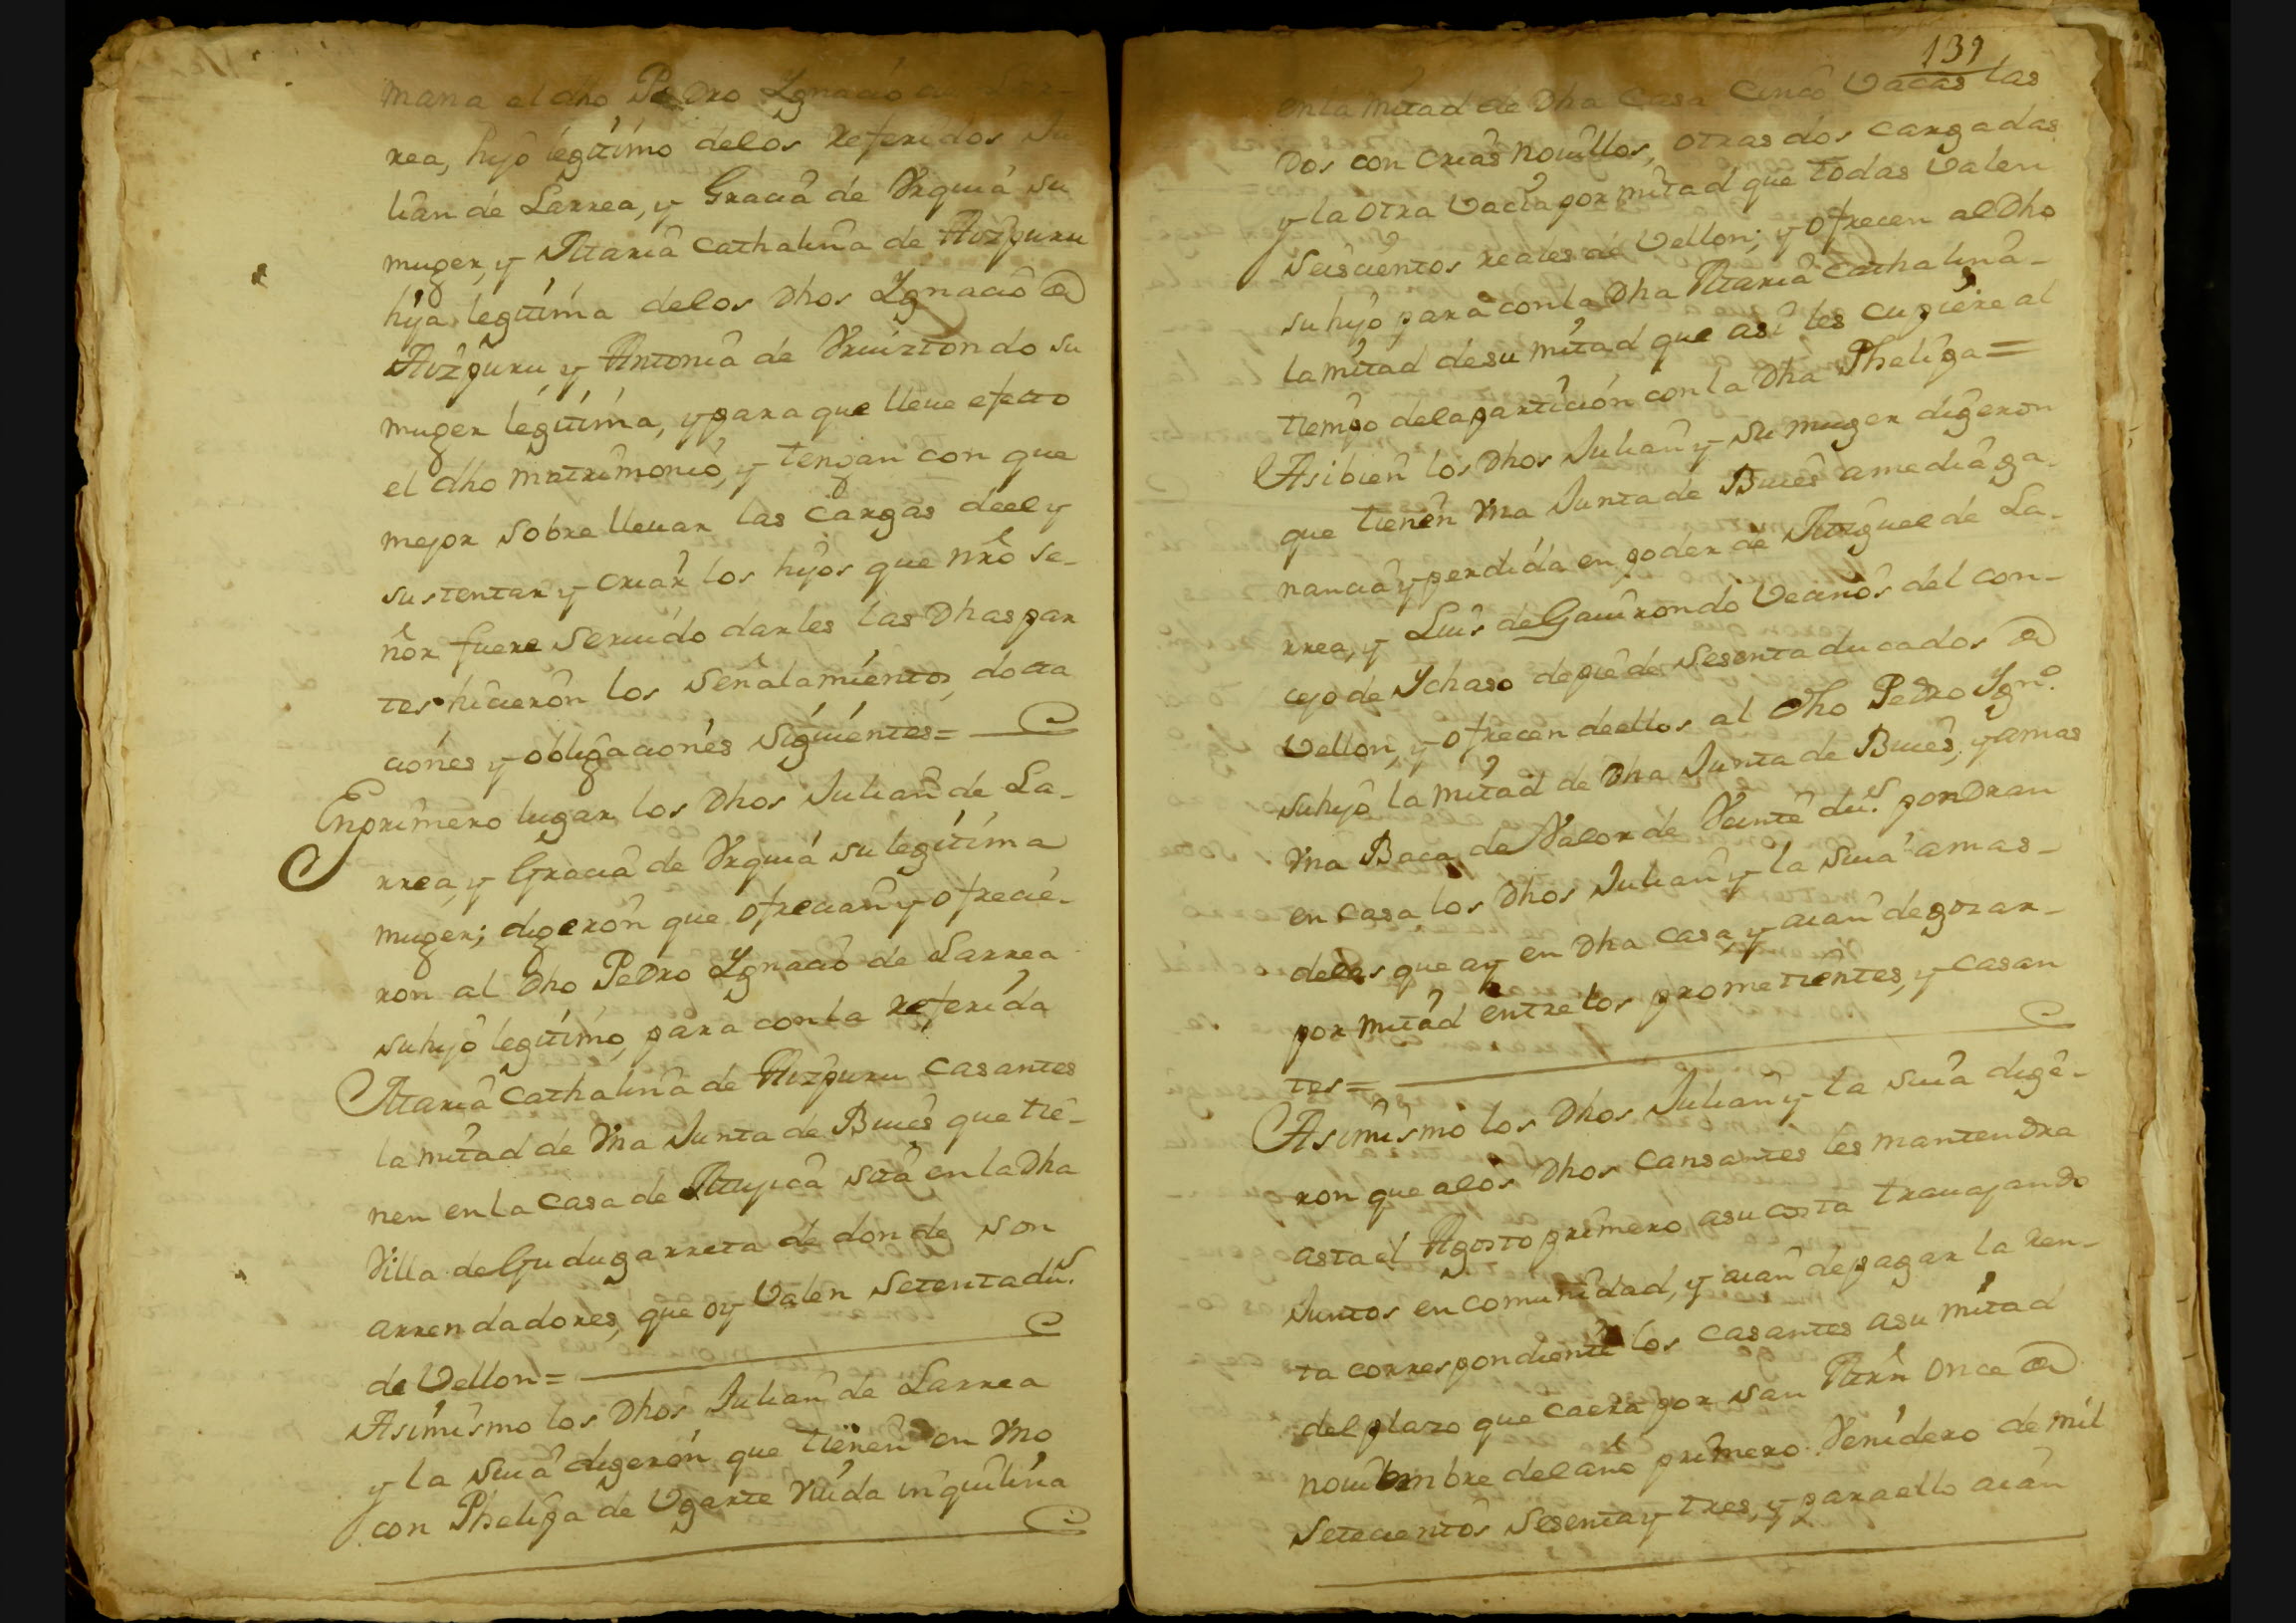 mana el dho Pedro Ygnacio de Lar-
rea, hijo legitimo delos referidos Ju
lian de Larrea, y Gracia de Vrquia su
muger, y Maria Cathalina de Aizpuru
hija legitima delos Dhos Ygnacio de
Aizpuru y Antonia de Vruiztondo su
muger legitima, y para que lleue efecto
el dho matrimonio, y tengan con que
mejor sobre lleuar las cargas deel y
sustentar y criar los hijos que nrô Se-
ñor fuere seruido darles las Dhas par
tes hicieron los señalamientos, dota
ciones y obligaciones siguientes=
En primero lugar los Dhos Julian de La-
rrea, y Gracia de Vrquia su legitima
muger; digeron que ofrecian y ofrecie-
ron al Dho Pedro Ygnacio de Larrea
su hijo legitimo, para con la referida
Maria Cathalina de Aizpuru casantes
la mitad de Vna Junta de Bueis que tie-
nen en la casa de Mujica sita en la Dha
Villa de Gudugarreta de donde son
arrendadores, que oy Valen setenta dus.
de Vellon=
Asimismo los Dhos Julian de Larrea
y la suia digeron que tienen en Vno
con Phelipa de Ugarte Viuda inquilina
139
en la mitad de Dha Casa Cinco Vacas las
Dos con crias nouillos, otras dos cargadas
y la otra Vacia por mitad que todas Valen
seiscientos reales de Vellon; y ofrecen al Dho
su hijo para con la Dha Maria Cathalina-
la mitad de su mitad que asi les cupiere al
tiempo dela particion con la Dha Phelipa=
Asi bien los Dhos Julian y su muger digeron
que tienen Vna Junta de Bueis a media ga-
nancia y perdida en poder de Miguel de La-
rrea, y Luis de Gauirondo Vecinos del con-
cejo de Ychaso de pie de sesenta ducados de
Vellon, y ofrecen deellos al Dho Pedro Ygno.
su hijo la mitad de Dha Junta de Bueis, y amas
Vna Baca de Valor de Veinte dus. pondran
en casa los Dhos Julian y la suia amas-
delas que ay en Dha casa, y aian degozar-
por mitad entre los prometientes, y casan
tes=
Asimismo los Dhos Julian y la suia dige-
ron que alos Dhos cansantes les mantendra
asta el Agosto primero asu costa trauajando
Juntos en comunidad, y aian de pagar la Ren-
ta correspondiente los casantes asu mitad
del plazo que caera por san Mrn once de
nouiembre del año primero Venidero de mil
setecientos sesenta y tres, y para ello aian